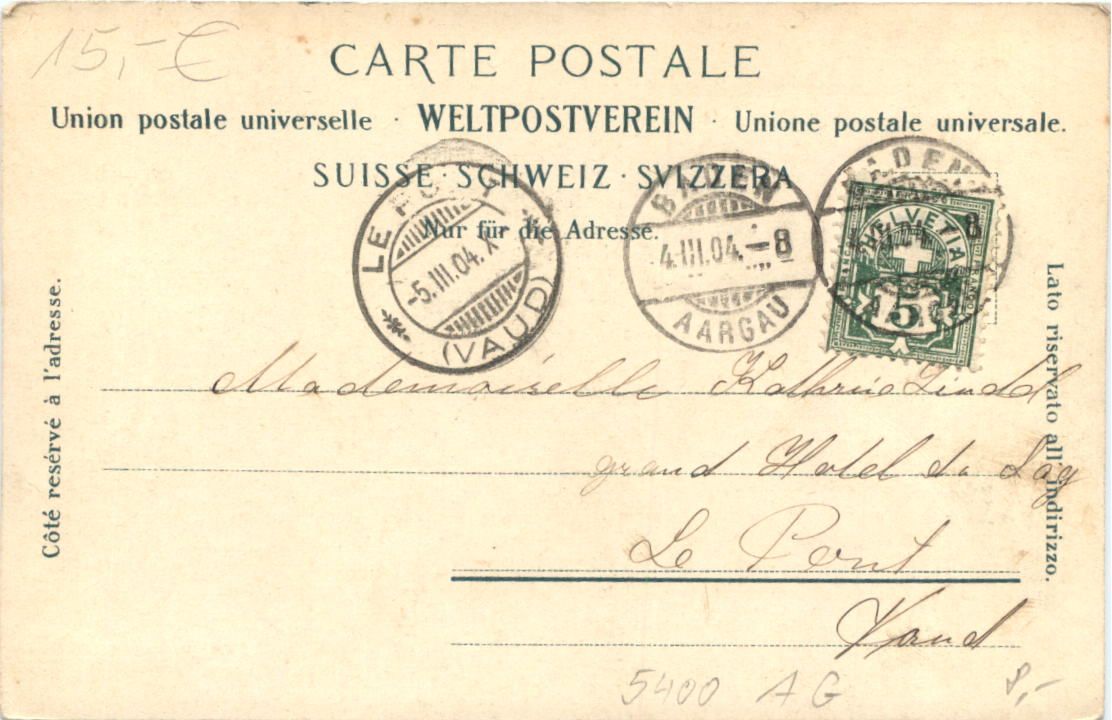 15,-€
CARTE POSTALE
Union postale universelle · WELTPOSTVEREIN · Unione postale universale.
SUISSE · SCHWEIZ · SVIZZERA
Nur für die Adresse.
Côté resérvé à l'adresse.
Lato riservato all'indirizzo.
LE PONT
-5.III.04.X
(VAUD)
BADEN
4.III.04.-8
AARGAU
BADEN
8
HELVETIA
5
Mademoiselle Kathrie
grand Hotel du Lag
Le Pont
Vaud
5400 AG
8,-